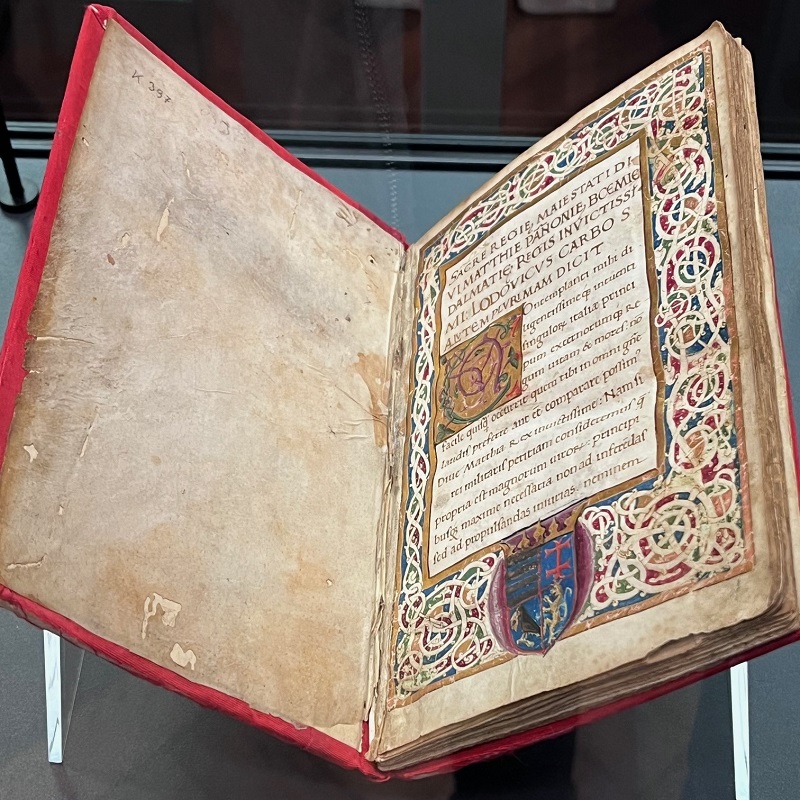 K 397
SACRE REGIE MAIESTATI DI
VI MATTHIE PANONIE, BOEMIE
DALMATIE REGIS INVICTISSI
MI: LODOVICVS CARBO S
ANTEM PLVRIMAM DICIT
Contemplanti mihi di
ligentissimeq intuenti
singulor italie princi
pum externorumq Re
gum uitam & mores: nō
facile quisq occurrit quem tibi in omni gñe
laudis preferre aut et comparare possim
Diue Matthia Rex inuictissime: Nam si
rei militaris peritiam consideremus q
propria est magnorum uiror: principi
busq maxime necessaria non ad inferēdas
sed ad propulsandas iniurias neminem